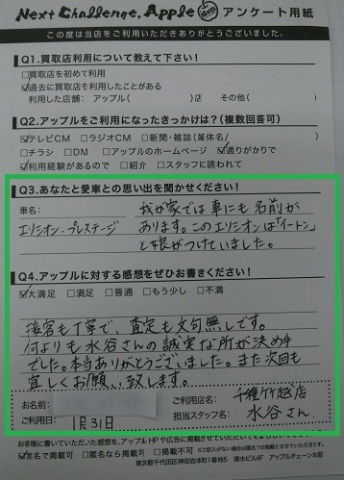 Next Challenge, Apple アンケート用紙
この度は当店をご利用いただきありがとうございました。
Q1.買取店利用について教えて下さい!
□買取を初めて利用
☑過去に買取店を利用したことがある
利用した店舗: アップル( )店 その他( )
Q2.アップルをご利用になったきっかけは?(複数回答可)
☑テレビCM □ラジオCM □新聞・雑誌(媒体名/ )
□チラシ □DM □アップルのホームページ ☑通りがかりで
☑利用経験があるので □紹介 □スタッフに誘われて
Q3.あなたと愛車との思い出を聞かせください!
車名:
エリシオン・プレステージ
我が家では車にも名前が
あります。このエリシオンは「イートン」
と娘がつけていました。
Q4.アップルに対する感想をぜひお書きください!
☑大満足 □満足 □普通 □もう少し □不満
接客も丁寧で、査定も文句無しです。
何よりも水谷さんの誠実な所が決め手
でした。本当ありがとうございました。また次回も
宜しくお願い致します。
お名前:
ご利用日: 1月31日
ご利用店名: 千種竹越店
担当スタッフ名: 水谷さん
お客様に書いていただいた感想を、アップルHPや広告に掲載させていただいて
☑実名で掲載可 □匿名なら掲載可 □掲載不可 ※ご記入がない場合は匿名での掲載とさせていただきます。
東京都千代田区神田岩本町1番地5 清水ビル6F アップルチェーン本部